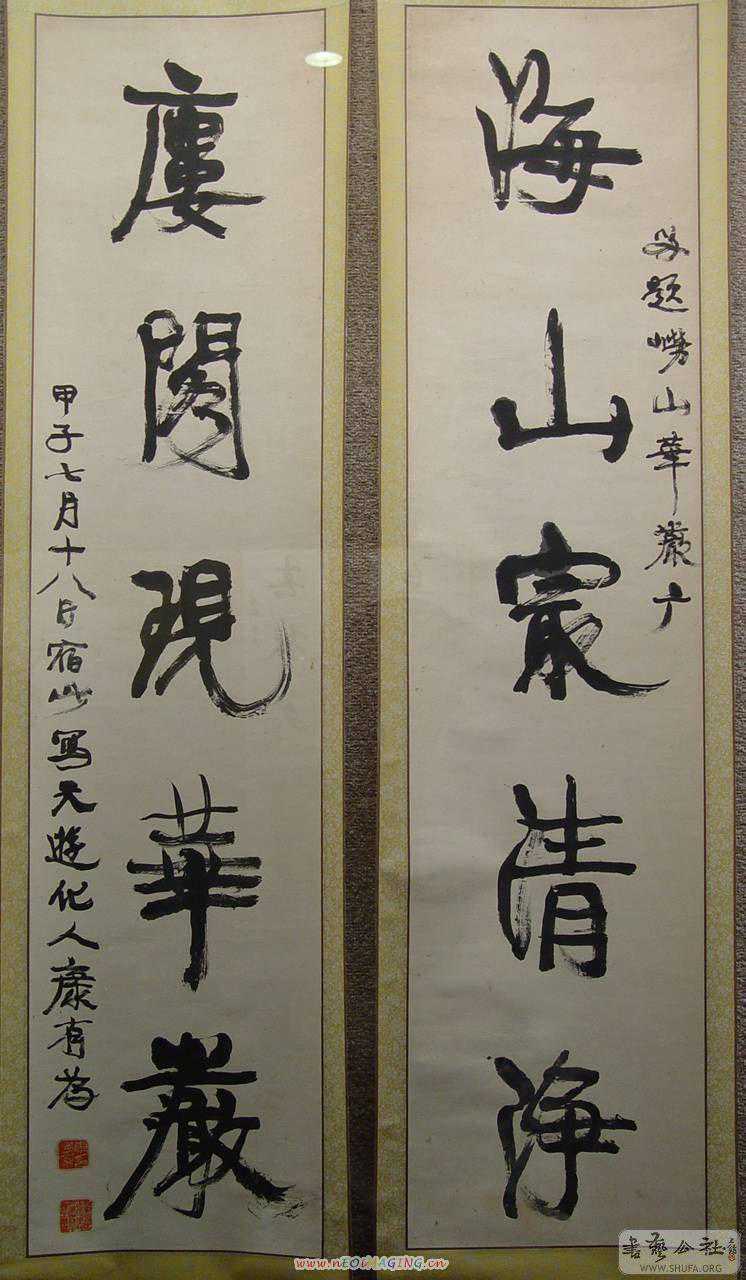 題嶗山華嚴广
海山㝡清淨
廔閣現華嚴
甲子七月十八日宿此寫天遊化人康有為
www.nEOiMAGING.cn
书艺公社
WWW.SHUFA.ORG